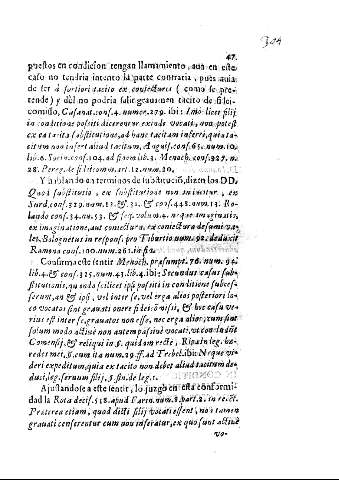 47.
puestos en condicion tengan llamamiento, aun en este
caso no tendria intento la parte contraria, pues auia
de ser à fortiori tacito ex conjecturis (como se pre-
tende) y del no podria salir grauamen tacito de fidei-
comisso, Casanat. conf. 4. numer. 279. ibi: Imò licet filij
in conditione positi dicerentur exinde vocati, non potest
ex ea tacita substitutione, ad hanc tacitam inferri, quia ta-
citum non infert aliud tacitum, conf. 65. num. 10.
lib. 6. conf. 104. ad finem lib. 3. Menoch. conf. 327. n.
28. Pereg. de fideicomm. art. 12. num. 20.
Y hablando en terminos de substitució, dizen los DD.
Quod substitutio, ex substitutione non inducitur, ex
Surd. conf. 329. num. 12. & 31. & conf. 448. num. 13. Ro-
lando conf. 34. nu. 53. & seq. volum. 4. neque imaginatio,
ex imaginatione, aut conjectura, ex coniectura
Bolognetus in respons. pro Tiburtio num. 92.
Ramona conf. 100. num. 261. in fin.
Confirma este sentir Menoch. præsumpt. 76. num. 94.
lib. 4. & conf. 325. num. 43. lib. 4. ibi: Secundus casus sub-
stitutionis, quando scilicet ipsi positi in conditione succes-
serunt, an & ipsi, vel inter se, vel erga alios posteriori lo-
co vocatos sint grauati onere fideicõmissi, & hoc casu ve-
rius est inter se, grauatos non esse, nec erga alios, cum sint
solum modo actiuè non autem passiuè vocati,
Comensis, & reliqui in §. quidam rectè, Ripa in leg. hæ-
redes mei, §. cum ita num. 29. ff. ad Trebel. ibi: Neque vi-
deri expeditum, quia ex tacito non dibet aliud tacitum de-
duci, leg. seruum filij, §. fin. de leg. 1.
Ajustandose a este sentir, lo juzgò en esta conformi-
dad la Rota decis. 518. apud Farin. num. 8. part. 2. in
Præterea etiam, quod dicti filij vocati essent, non tamen
grauati conserentur cum non inferatur, ex quo sunt actiuè
vo-